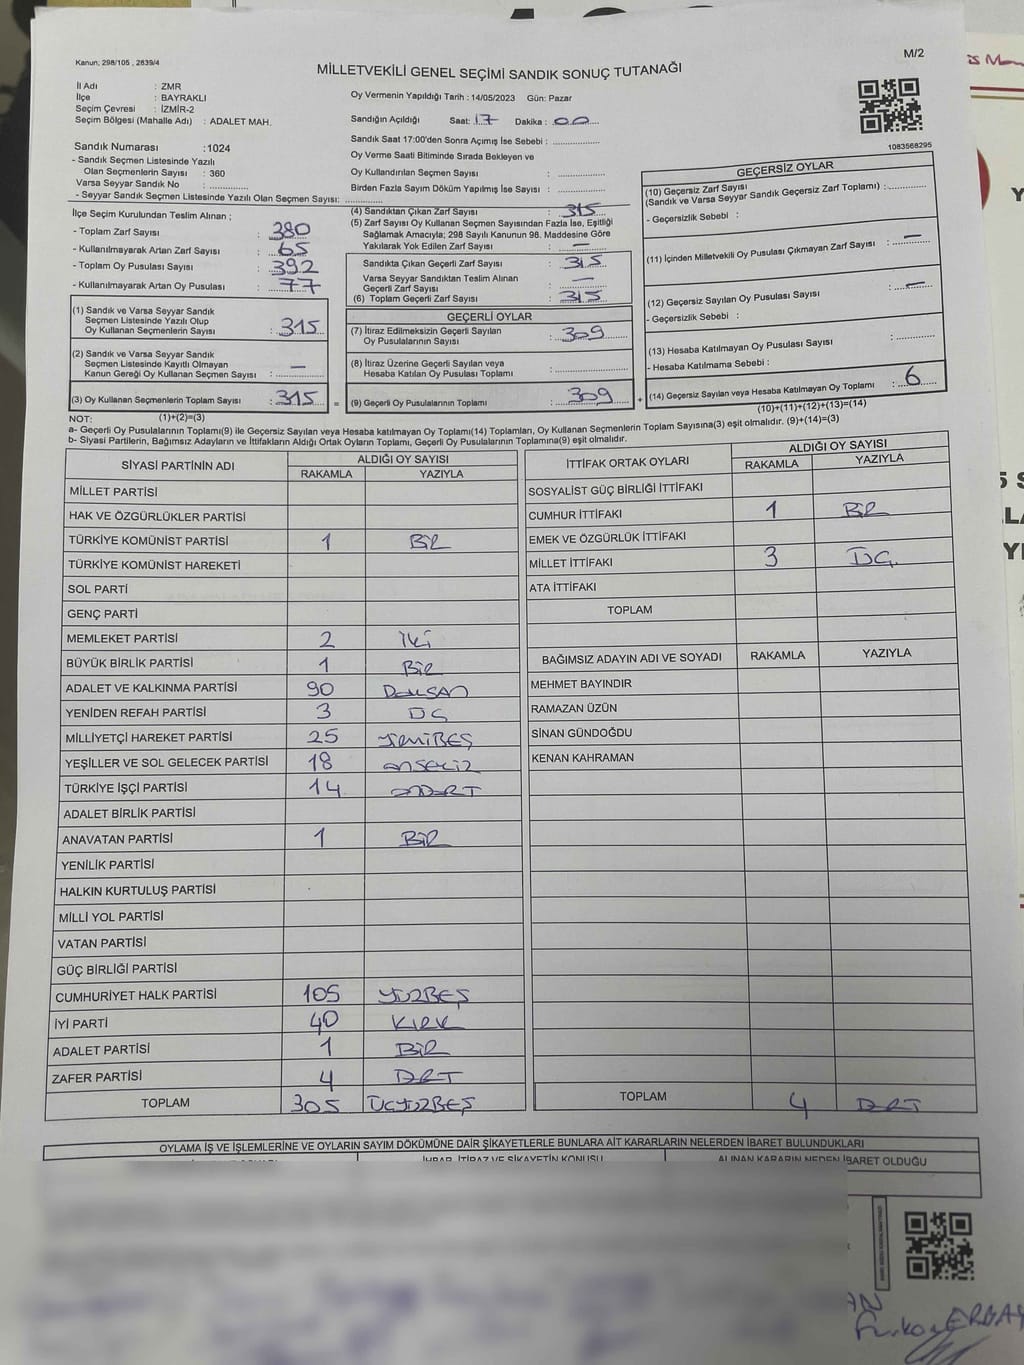 Kanun; 298/105 , 2839/4
MİLLETVEKİLİ GENEL SEÇİMİ SANDIK SONUÇ TUTANAĞI
M/2
İl Adı : ZMR
İlçe : BAYRAKLI
Seçim Çevresi : İZMİR-2
Seçim Bölgesi (Mahalle Adı) : ADALET MAH.
Oy Vermenin Yapıldığı Tarih : 14/05/2023 Gün: Pazar
Sandığın Açıldığı Saat: 17 Dakika : 00
Sandık Saat 17:00'den Sonra Açımış İse Sebebi :
Oy Verme Saati Bitiminde Sırada Bekleyen ve
Oy Kullandırılan Seçmen Sayısı :
Birden Fazla Sayım Döküm Yapılmış İse Sayısı :
1083568295
Sandık Numarası : 1024
- Sandık Seçmen Listesinde Yazılı
Olan Seçmen Sayısı : 360
Varsa Seyyar Sandık No :
- Seyyar Sandık Seçmen Listesinde Yazılı Olan Seçmen Sayısı:
İlçe Seçim Kurulundan Teslim Alınan ;
- Toplam Zarf Sayısı : 380
- Kullanılmayarak Artan Zarf Sayısı : 65
- Toplam Oy Pusulası Sayısı : 392
- Kullanılmayarak Artan Oy Pusulası : 77
(1) Sandık ve Varsa Seyyar Sandık
Seçmen Listesinde Yazılı Olup
Oy Kullanan Seçmenlerin Sayısı : 315
(2) Sandık ve Varsa Seyyar Sandık
Seçmen Listesinde Kayıtlı Olmayan
Kanun Gereği Oy Kullanan Seçmen Sayısı : —
(3) Oy Kullanan Seçmenlerin Toplam Sayısı : 315
(1)+(2)=(3)
(4) Sandıktan Çıkan Zarf Sayısı : 315
(5) Zarf Sayısı Oy Kullanan Seçmen Sayısından Fazla İse, Eşitliği
Sağlamak Amacıyla; 298 Sayılı Kanunun 98. Maddesine Göre
Yakılarak Yok Edilen Zarf Sayısı : —
Sandıkta Çıkan Geçerli Zarf Sayısı : 315
Varsa Seyyar Sandıktan Teslim Alınan
Geçerli Zarf Sayısı : —
(6) Toplam Geçerli Zarf Sayısı : 315
GEÇERLİ OYLAR
(7) İtiraz Edilmeksizin Geçerli Sayılan
Oy Pusulalarının Sayısı : 309
(8) İtiraz Üzerine Geçerli Sayılan veya
Hesaba Katılan Oy Pusulası Toplamı :
= (9) Geçerli Oy Pusulalarının Toplamı : 309
GEÇERSİZ OYLAR
(10) Geçersiz Zarf Sayısı
(Sandık ve Varsa Seyyar Sandık Geçersiz Zarf Toplamı) :
- Geçersizlik Sebebi :
(11) İçinden Milletvekili Oy Pusulası Çıkmayan Zarf Sayısı : —
(12) Geçersiz Sayılan Oy Pusulası Sayısı : —
- Geçersizlik Sebebi :
(13) Hesaba Katılmayan Oy Pusulası Sayısı :
- Hesaba Katılmama Sebebi :
+ (14) Geçersiz Sayılan veya Hesaba Katılmayan Oy Toplamı : 6
(10)+(11)+(12)+(13)=(14)
NOT:
a- Geçerli Oy Pusulalarının Toplamı(9) ile Geçersiz Sayılan veya Hesaba katılmayan Oy Toplamı(14) Toplamları, Oy Kullanan Seçmenlerin Toplam Sayısına(3) eşit olmalıdır. (9)+(14)=(3)
b- Siyasi Partilerin, Bağımsız Adayların ve İttifakların Aldığı Ortak Oyların Toplamı, Geçerli Oy Pusulalarının Toplamına(9) eşit olmalıdır.
SİYASİ PARTİNİN ADI ALDIĞI OY SAYISI
RAKAMLA YAZIYLA
MİLLET PARTİSİ
HAK VE ÖZGÜRLÜKLER PARTİSİ
TÜRKİYE KOMÜNİST PARTİSİ 1 BİR
TÜRKİYE KOMÜNİST HAREKETİ
SOL PARTİ
GENÇ PARTİ
MEMLEKET PARTİSİ 2 İKİ
BÜYÜK BİRLİK PARTİSİ 1 BİR
ADALET VE KALKINMA PARTİSİ 90 DOKSAN
YENİDEN REFAH PARTİSİ 3 ÜÇ
MİLLİYETÇİ HAREKET PARTİSİ 25 YİRMİBEŞ
YEŞİLLER VE SOL GELECEK PARTİSİ 18 ONSEKİZ
TÜRKİYE İŞÇİ PARTİSİ 14 ONDÖRT
ADALET BİRLİK PARTİSİ
ANAVATAN PARTİSİ 1 BİR
YENİLİK PARTİSİ
HALKIN KURTULUŞ PARTİSİ
MİLLİ YOL PARTİSİ
VATAN PARTİSİ
GÜÇ BİRLİĞİ PARTİSİ
CUMHURİYET HALK PARTİSİ 105 YÜZBEŞ
İYİ PARTİ 40 KIRK
ADALET PARTİSİ 1 BİR
ZAFER PARTİSİ 4 DÖRT
TOPLAM 305 ÜÇYÜZBEŞ
İTTİFAK ORTAK OYLARI ALDIĞI OY SAYISI
RAKAMLA YAZIYLA
SOSYALİST GÜÇ BİRLİĞİ İTTİFAKI
CUMHUR İTTİFAKI 1 BİR
EMEK VE ÖZGÜRLÜK İTTİFAKI
MİLLET İTTİFAKI 3 ÜÇ
ATA İTTİFAKI
TOPLAM
BAĞIMSIZ ADAYIN ADI VE SOYADI RAKAMLA YAZIYLA
MEHMET BAYINDIR
RAMAZAN ÜZÜN
SİNAN GÜNDOĞDU
KENAN KAHRAMAN
TOPLAM 4 DÖRT
OYLAMA İŞ VE İŞLEMLERİNE VE OYLARIN SAYIM DÖKÜMÜNE DAİR ŞİKAYETLERLE BUNLARA AİT KARARLARIN NELERDEN İBARET BULUNDUKLARI
İHBAR, İTİRAZ VE ŞİKAYETİN KONUSU ALINAN KARARIN NEDEN İBARET OLDUĞU